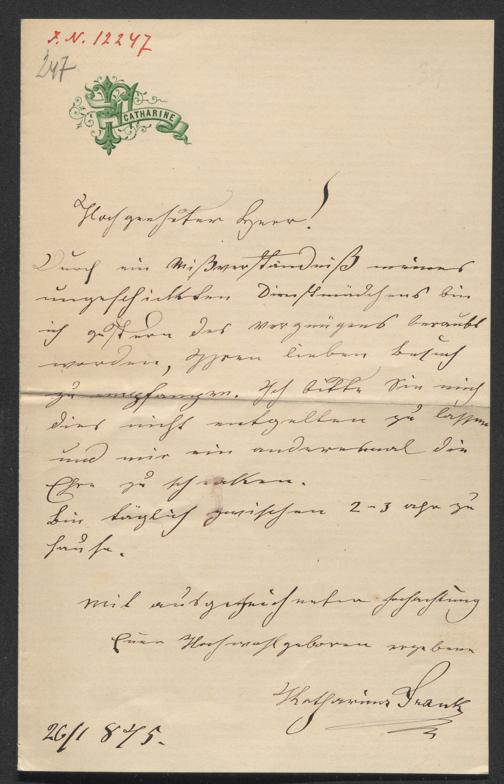 J. N. 12247
247
CATHARINE
Hochgeehrter Herr!
Durch ein Mißverständniß meines
ungeschickten Dienstmädchens bin
ich gestern des Vergnügens beraubt
worden, Ihren lieben Besuch
zu empfangen. Ich bitte Sie mich
dies nicht entgelten zu lassen
und mir ein anderesmal die
Ehre zu schenken.
Bin täglich zwischen 2-3 Uhr zu
Hause.
Mit ausgezeichneter Hochachtung
Euer Hochwohlgeboren ergebene
Katharina Frank
26/1 875.